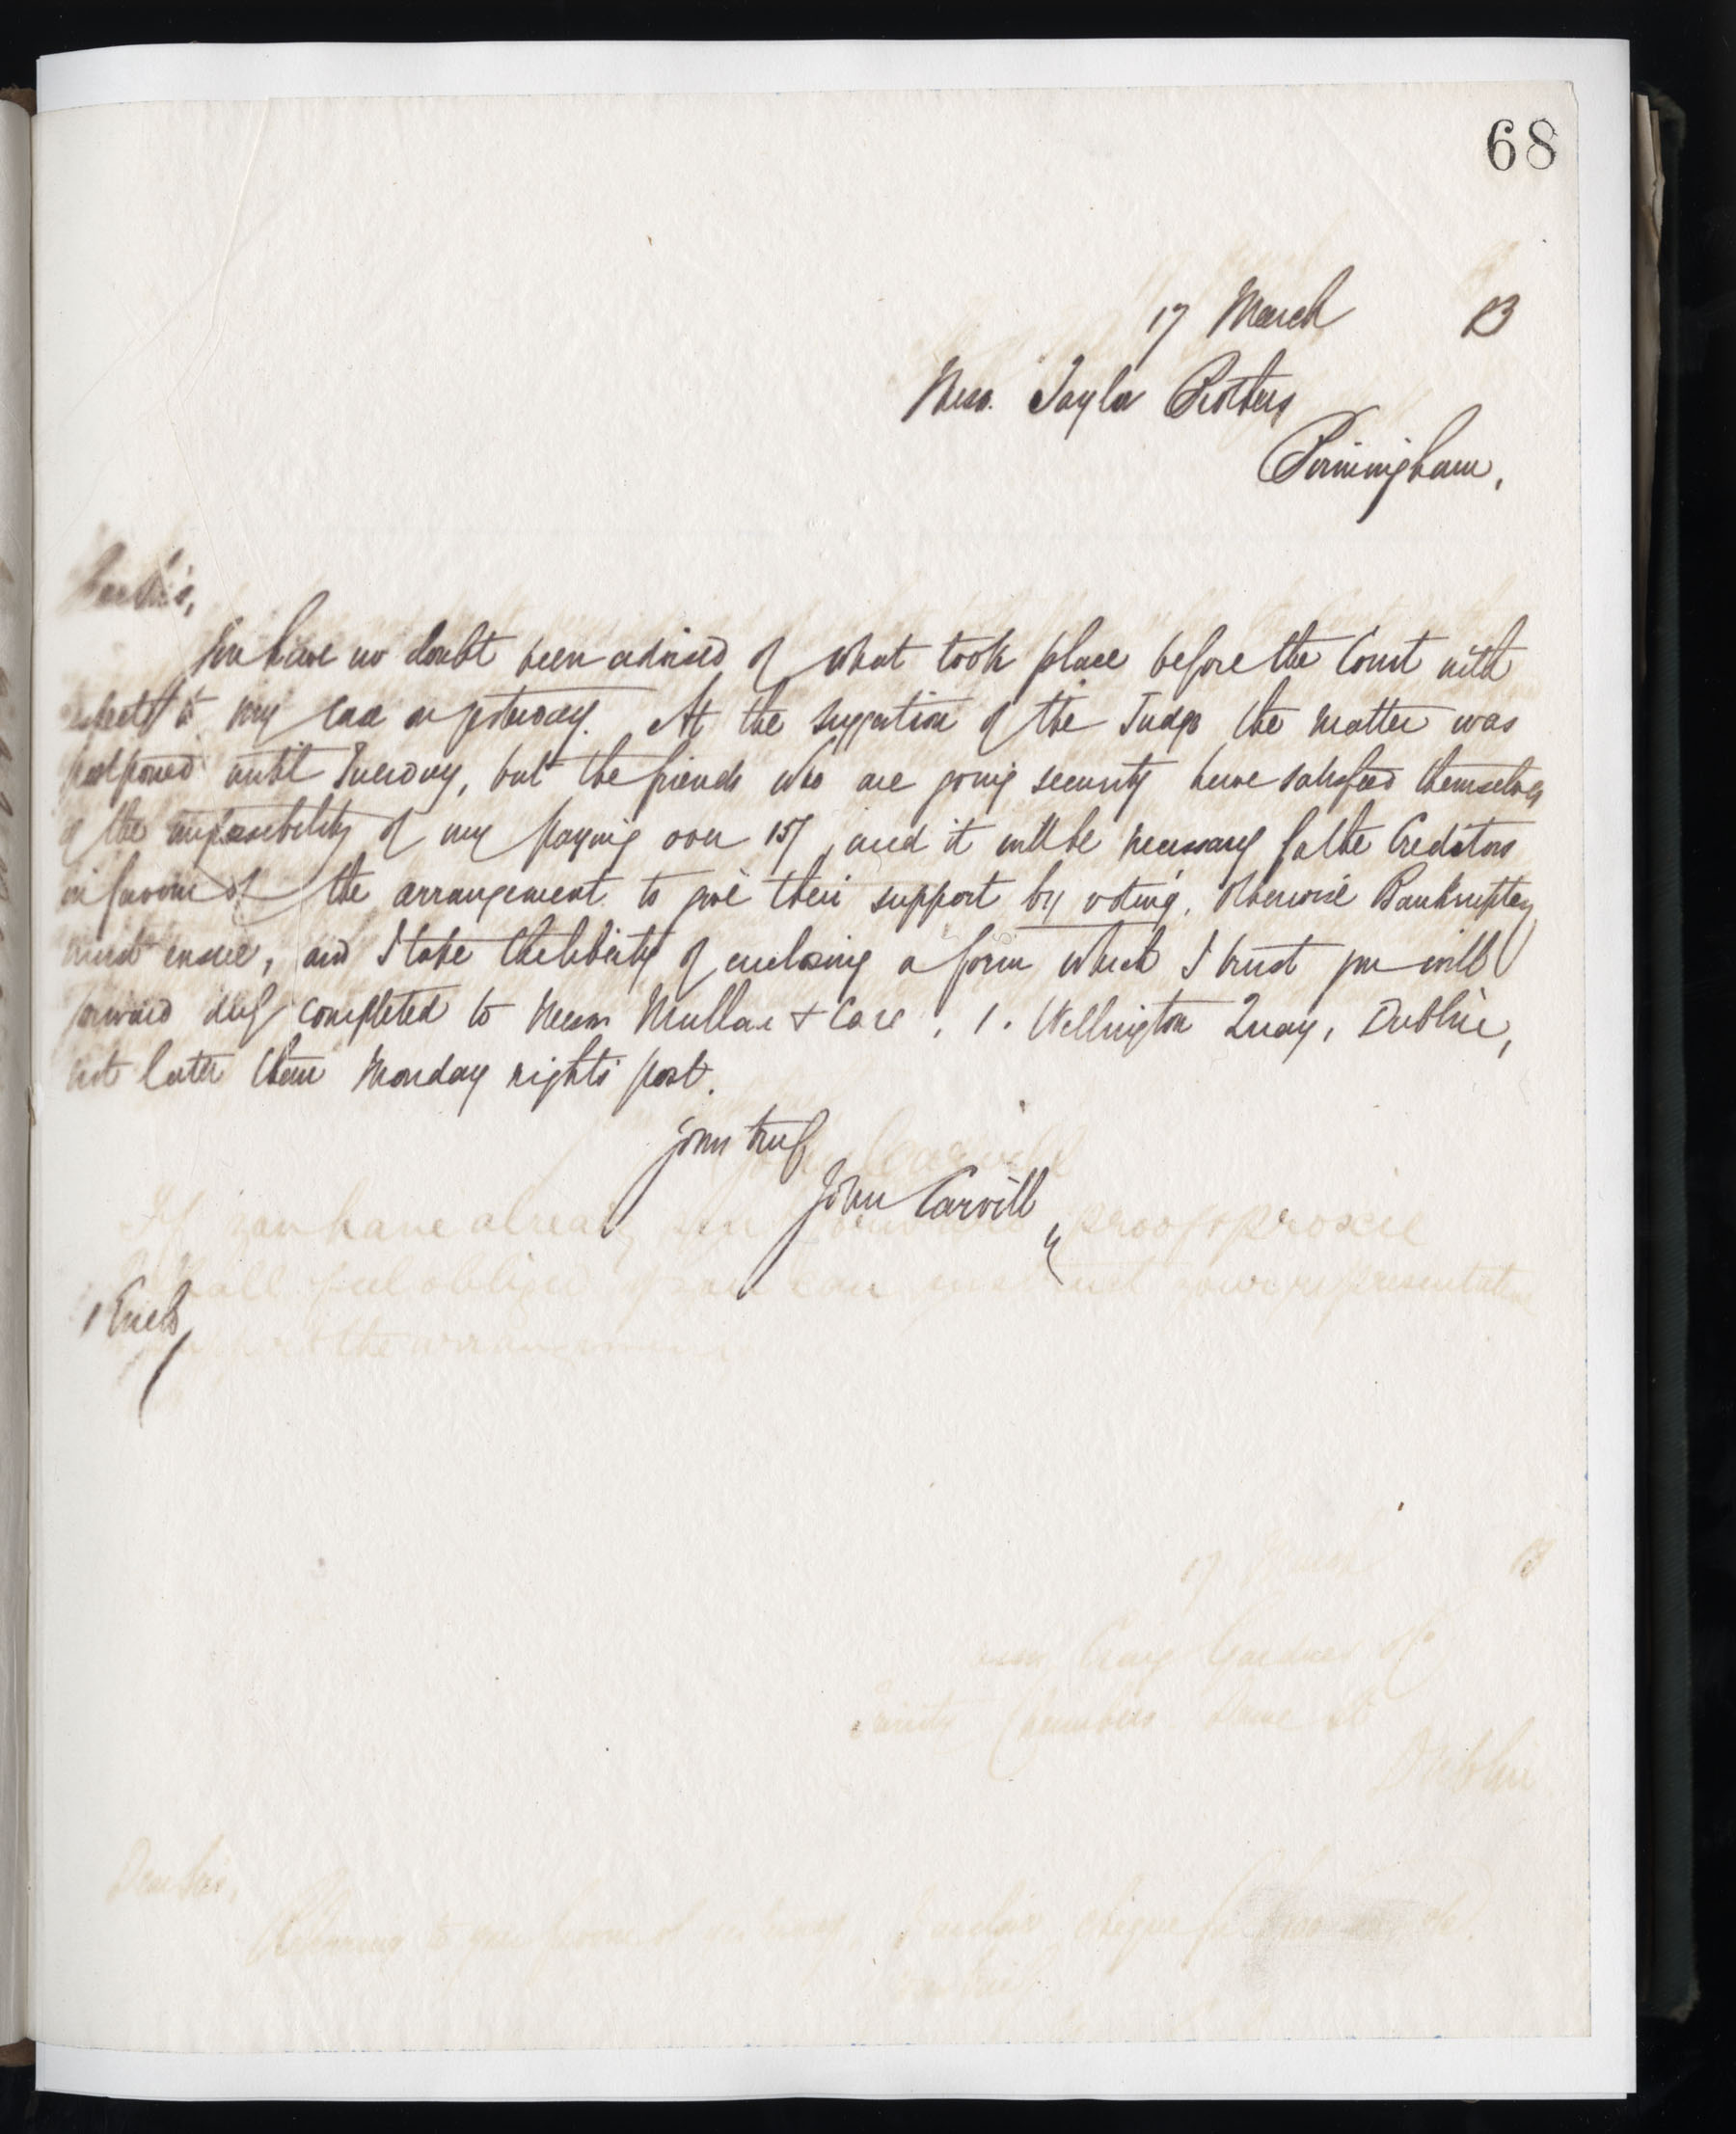 68
17 March 93
Mess. Taylor Brothers
Birmingham,
Dear Sirs,
You have no doubt been advised of what took place before the Court with
respect to my case on yesterday. At the suggestion of the Judge the matter was
postponed until Tuesday, but the friends who are going security have satisfied themselves
of the impossibility of my paying over 15/ and it will be necessary for the Creditors
in favour of the arrangement to give their support by voting. Otherwise Bankruptcy
must ensue, and I take the liberty of enclosing a form which I trust you will
forward duly completed to Messrs Mullan &amp; Care, 1. Wellington Quay, Dublin,
not later than Monday nights post.
Yours truly
John Carvill
If you have already proof &amp; proxie
shall feel obliged if you can instruct your representative
the arrangement
1 Encl
17 March 93
Craig Gardner &amp; Co
Trinity Chambers Dame St
Dublin
Dear Sirs,
Referring to your favour of cheque for